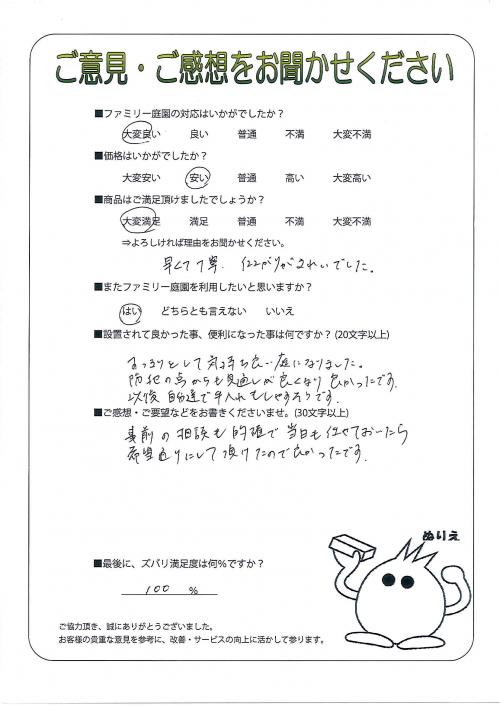 ご意見・ご感想をお聞かせください
■ファミリー庭園の対応はいかがでしたか？
大変良い 良い 普通 不満 大変不満
■価格はいかがでしたか？
大変安い 安い 普通 高い 大変高い
■商品はご満足頂けましたでしょうか？
大変満足 満足 普通 不満 大変不満
⇒よろしければ理由をお聞かせください。
早くて丁寧。仕上がりがきれいでした。
■またファミリー庭園を利用したいと思いますか？
はい どちらとも言えない いいえ
■設置されて良かった事、便利になった事は何ですか？(20文字以上)
すっきりとして気持ち良い庭になりました。
防犯の点からも見通しが良くなり良かったです。
以後自分達で手入れもしやすそうです。
■ご感想・ご要望などをお書きくださいませ。(30文字以上)
事前の相談も的確で当日も任せておいたら
希望通りにして頂けたので良かったです。
ぬりえ
■最後に、ズバリ満足度は何％ですか？
100 %
ご協力頂き、誠にありがとうございました。
お客様の貴重な意見を参考に、改善・サービスの向上に活かして参ります。